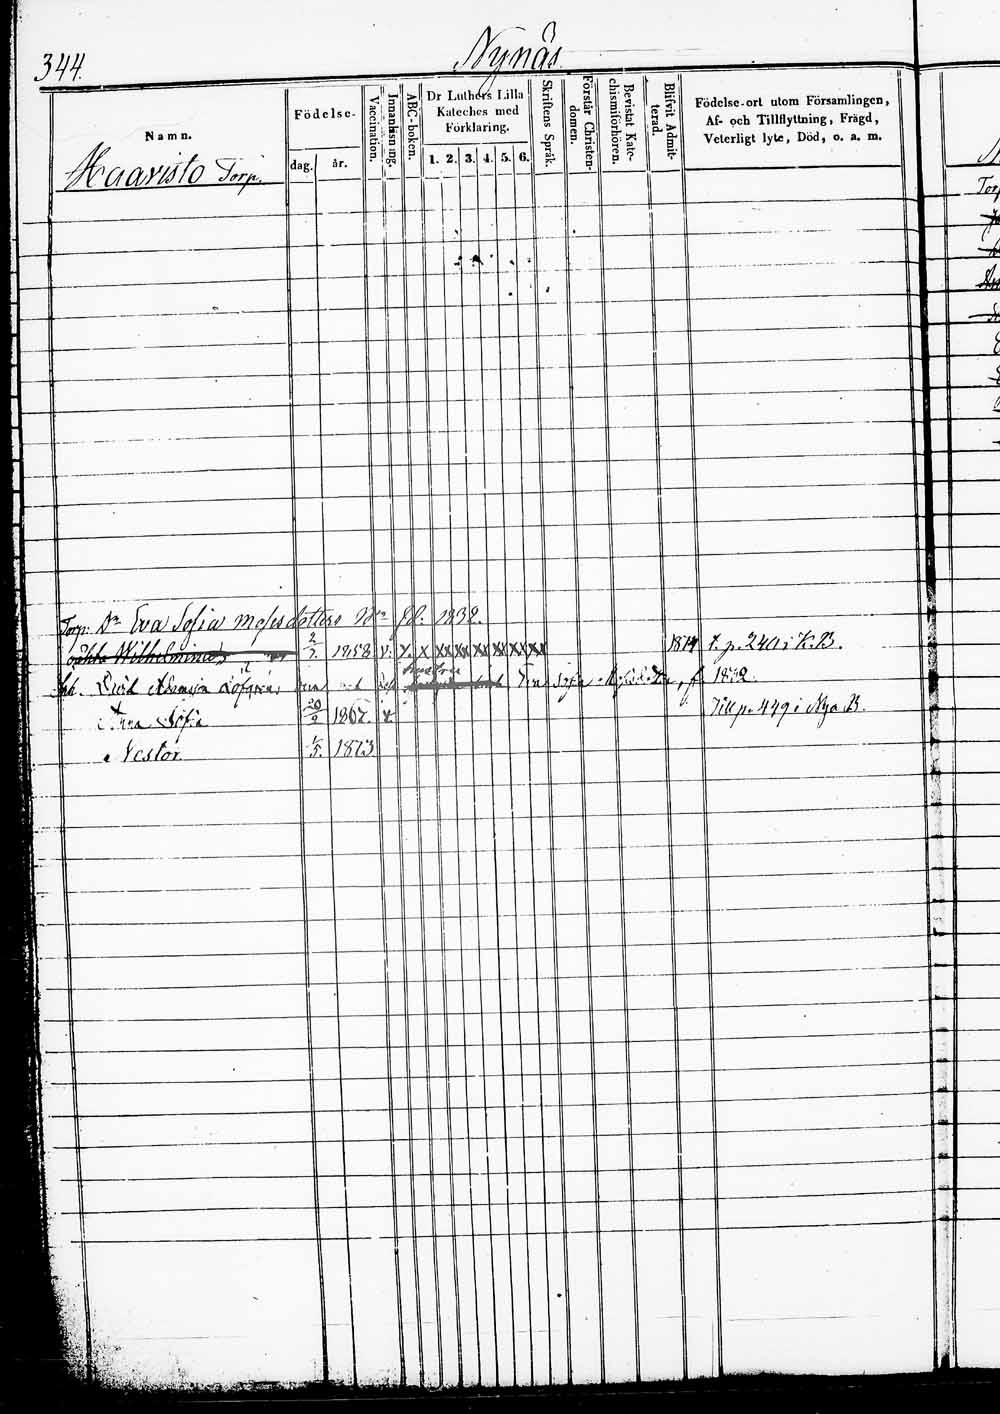 344.
Nynäs
Namn.
Födelse-
dag.
år.
Vaccination.
Innanläsning.
ABC-boken.
Dr Luthers Lilla
Kateches med
Förklaring.
1. 2. 3. 4. 5. 6.
Skriftens Språk.
Förstår Christen-
domen.
Bevistat Kate-
chismiförhören.
Blifvit Admit-
terad.
Födelse-ort utom Församlingen,
Af- och Tillflyttning, Frägd,
Veterligt lyte, Död, o. a. m.
Haaristo Torp.
Torp: Eva Sofia Mosesdotters 1832.
Wilhelmina 2/2 1858 v. x x xx xx xx xx xx xx t. p. 240 i K.B.
hustru
Eva Sofia f. 1832
Anna Sofia 20/2 1867. v. Till p. 449 i Nya B.
Nestor 1/5. 1873